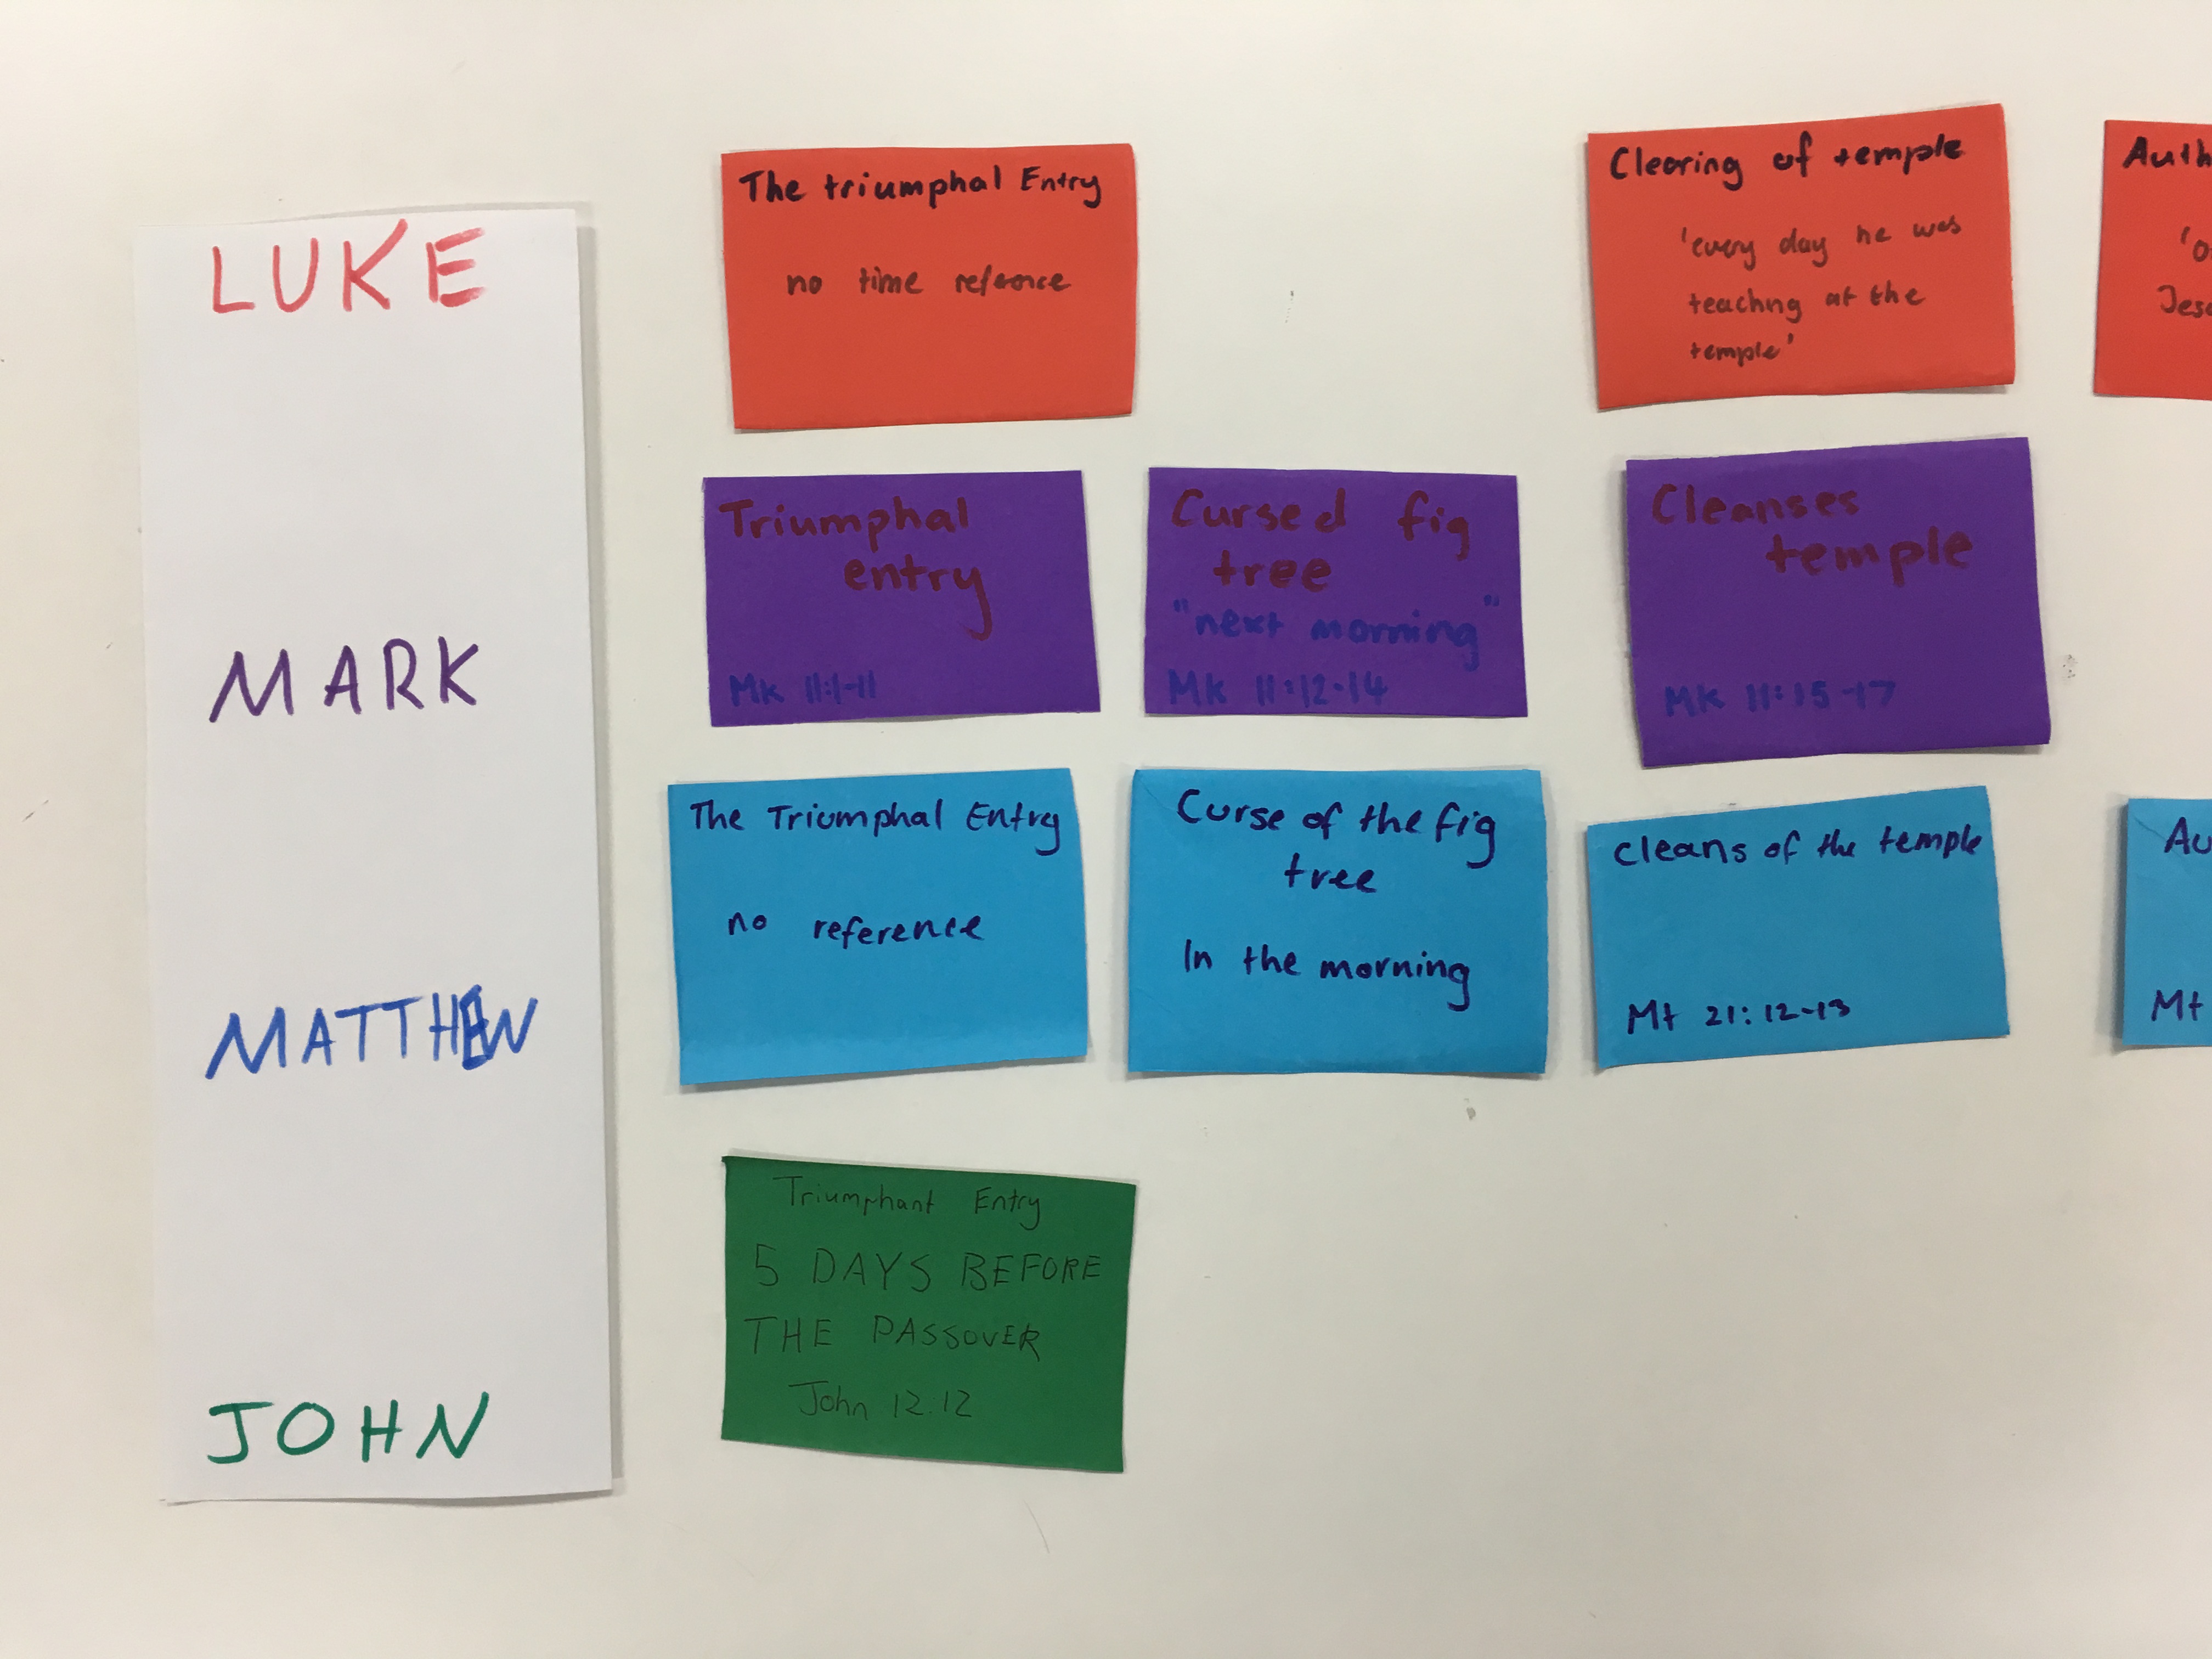 LUKE
The triumphal Entry
no time reference
Clearing of temple
'every day he was
teachng at the
temple'
Auth
Jes
MARK
Triumphal
entry
Mk 11:1-11
Cursed fig
tree
"next morning"
Mk 11:12-14
Cleanses
temple
Mk 11:15-17
MATTHEW
The Triumphal Entry
no reference
Curse of the fig
tree
In the morning
cleans of the temple
Mt 21:12-13
Au
Mt
JOHN
Triumphant Entry
5 DAYS BEFORE
THE PASSOVER
John 12.12